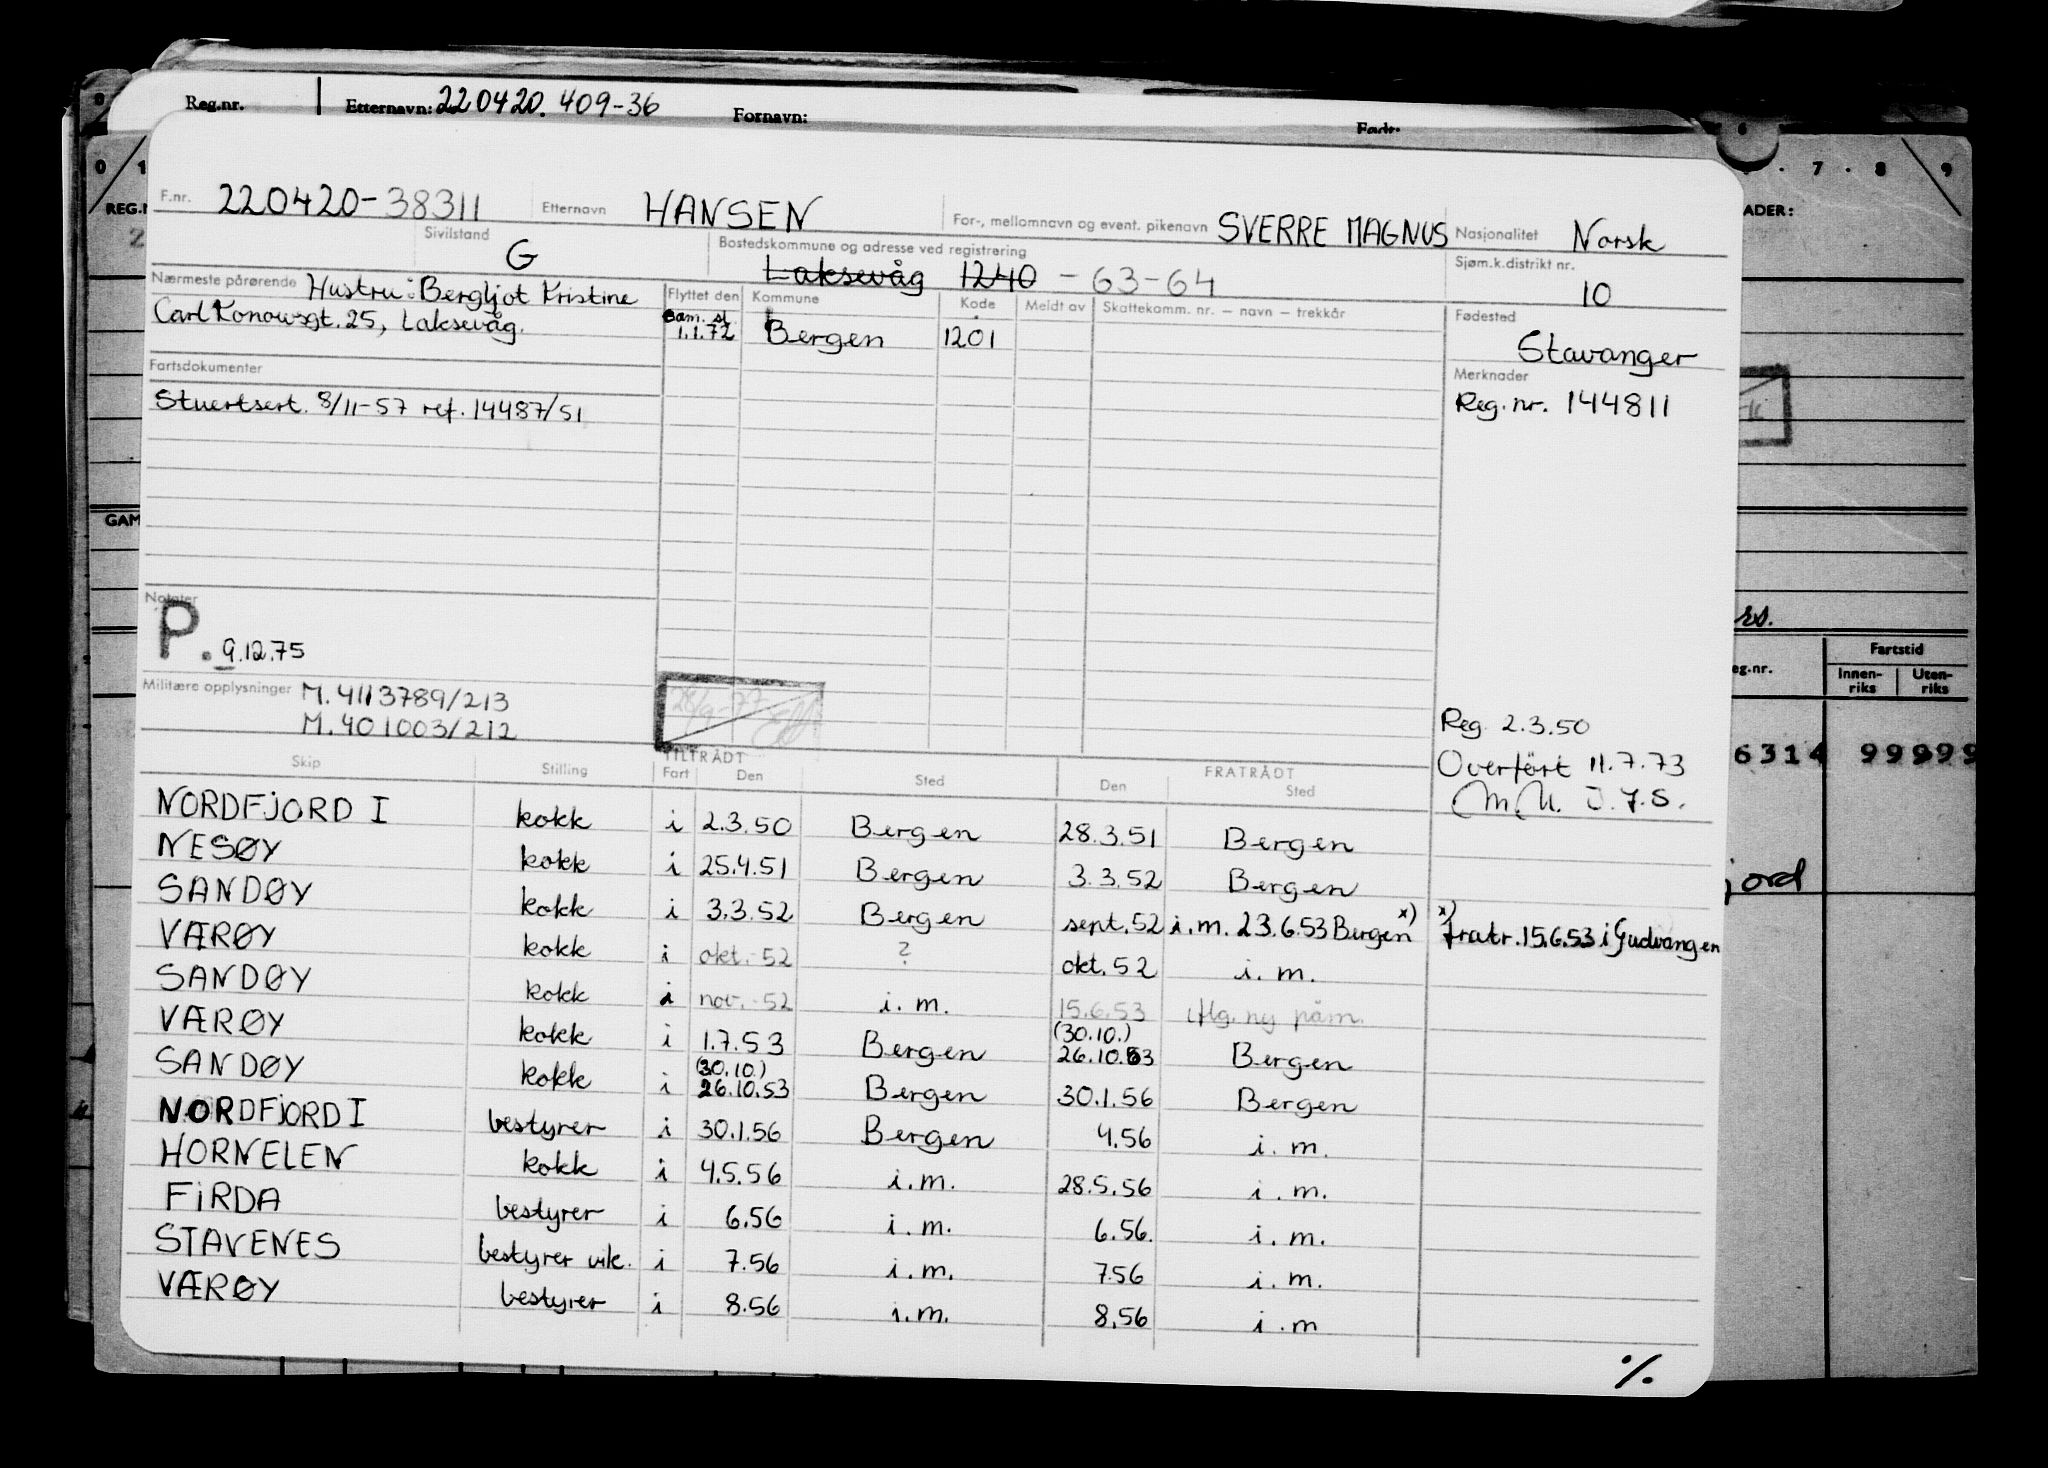 Reg.nr. Etternavn: 220420.409-36 Fornavn: Født:
F.nr. 220420-38311 Etternavn HANSEN For-, mellomnavn og event. pikenavn SVERRE MAGNUS Nasjonalitet Norsk
Sivilstand G Bostedskommune og adresse ved registrering Laksevåg 1240 - 63-64 Sjøm.k.distrikt nr. 10
Nærmeste pårørende Hustru: Bergljot Kristine
Carl Konowsgt. 25, Laksevåg.
Flyttet den Kommune Kode Meldt av Skattekomm. nr. – navn – trekkår
Sam. sl. 1.1.72 Bergen 1201
Fødested Stavanger
Fartsdokumenter
Stuertsert. 8/11-57 ref. 14487/51
Merknader
Reg. nr. 144811
Notater
P. 9.12.75
Militære opplysninger M. 4113789/213
M. 401003/212
28/9-77
Reg. 2.3.50
Overført 11.7.73
M.M. J.J.S.
TILTRÅDT FRATRÅDT
Skip Stilling Fart Den Sted Den Sted
NORDFJORD I kokk i 2.3.50 Bergen 28.3.51 Bergen
NESØY kokk i 25.4.51 Bergen 3.3.52 Bergen
SANDØY kokk i 3.3.52 Bergen sept. 52 i. m. 23.6.53 Bergen x) x) fratr. 15.6.53 i Gudvangen
VÆRØY kokk i okt. - 52 ? okt. 52 i. m.
SANDØY kokk i nov. - 52 i. m. 15.6.53 iflg. ny påm.
VÆRØY kokk i 1.7.53 Bergen (30.10.) 26.10.53 Bergen
SANDØY kokk i (30.10.) 26.10.53 Bergen 30.1.56 Bergen
NORDFJORD I bestyrer i 30.1.56 Bergen 4.56 i. m.
HORNELEN kokk i 4.5.56 i. m. 28.5.56 i. m.
FIRDA bestyrer i 6.56 i. m. 6.56. i. m.
STAVENES bestyrer vik. i 7.56 i. m. 7.56 i. m.
VÆRØY bestyrer i 8.56 i. m. 8.56 i. m
%.
0 1
REG.N
2
GAM
7 8 9
ADER:
rs.
eg.nr. Fartstid
Innen-riks Uten-riks
6314 99999
jord